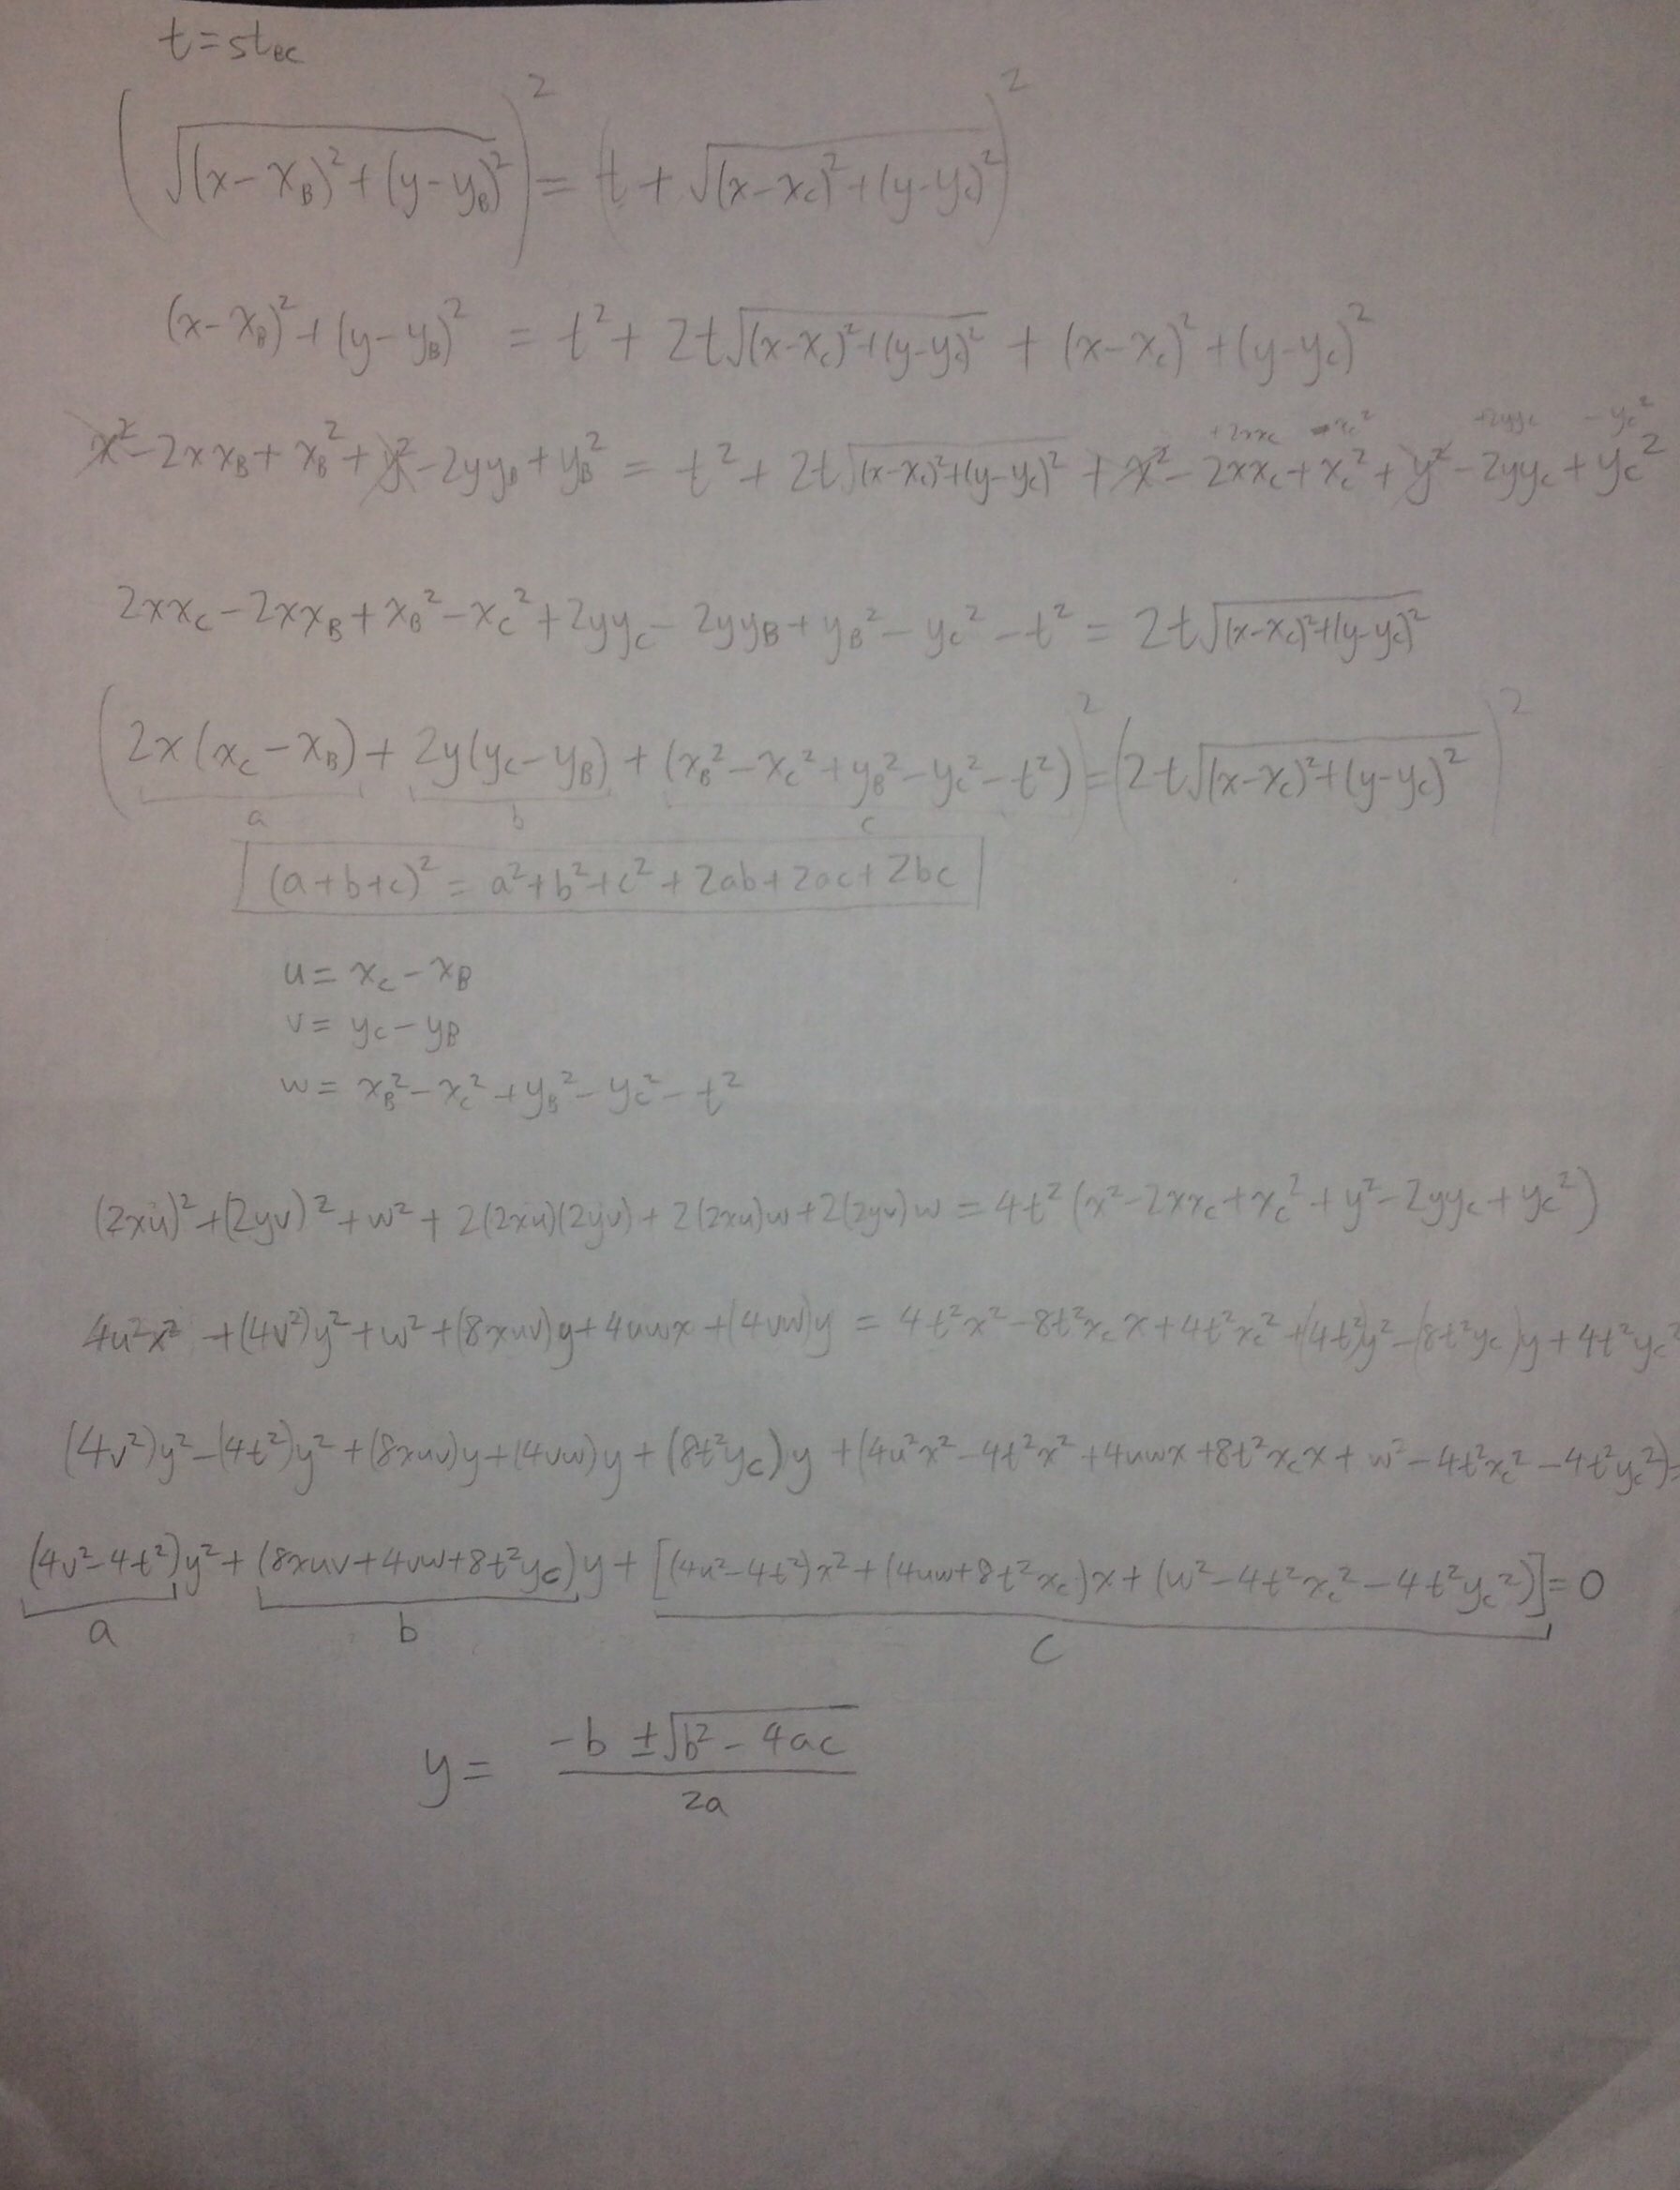 t = st_BC
(√((x-x_B)²+(y-y_B)²))² = (t + √((x-x_C)²+(y-y_C)²))²
(x-x_B)²+(y-y_B)² = t² + 2t√((x-x_C)²+(y-y_C)²) + (x-x_C)²+(y-y_C)²
+2xx_C -x_C² +2yy_C -y_C²
x²-2xx_B+x_B²+y²-2yy_B+y_B² = t²+2t√((x-x_C)²+(y-y_C)²) + x²-2xx_C+x_C²+y²-2yy_C+y_C²
2xx_C-2xx_B+x_B²-x_C²+2yy_C-2yy_B+y_B²-y_C²-t² = 2t√((x-x_C)²+(y-y_C)²)
(2x(x_C-x_B)+2y(y_C-y_B)+(x_B²-x_C²+y_B²-y_C²-t²))² = (2t√((x-x_C)²+(y-y_C)²))²
a b c
(a+b+c)² = a²+b²+c²+2ab+2ac+2bc
u = x_C-x_B
v = y_C-y_B
w = x_B²-x_C²+y_B²-y_C²-t²
(2xu)²+(2yv)²+w²+2(2xu)(2yv)+2(2xu)w+2(2yv)w = 4t²(x²-2xx_C+x_C²+y²-2yy_C+y_C²)
4u²x²+(4v²)y²+w²+(8xuv)y+4uwx+(4vw)y = 4t²x²-8t²x_C x+4t²x_C²+(4t²)y²-(8t²y_C)y+4t²y_C²
(4v²)y²-(4t²)y²+(8xuv)y+(4vw)y+(8t²y_C)y+(4u²x²-4t²x²+4uwx+8t²x_C x+w²-4t²x_C²-4t²y_C²)=
(4v²-4t²)y²+(8xuv+4vw+8t²y_C)y+[(4u²-4t²)x²+(4uw+8t²x_C)x+(w²-4t²x_C²-4t²y_C²)]=0
a b c
y = (-b ±√(b²-4ac))/2a